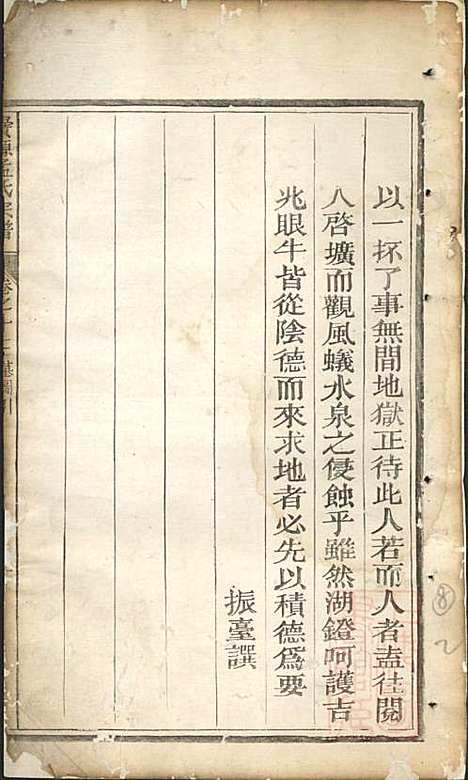 以一抔了事無間地獄正待此人若而人者盍往閱
人啓壙而觀風蟻水泉之侵蝕乎雖然湖鐙呵護吉
兆眼牛皆從陰德而來求地者必先以積德爲要
振臺譔
氏宗譜
卷之
墓圖引
8
2